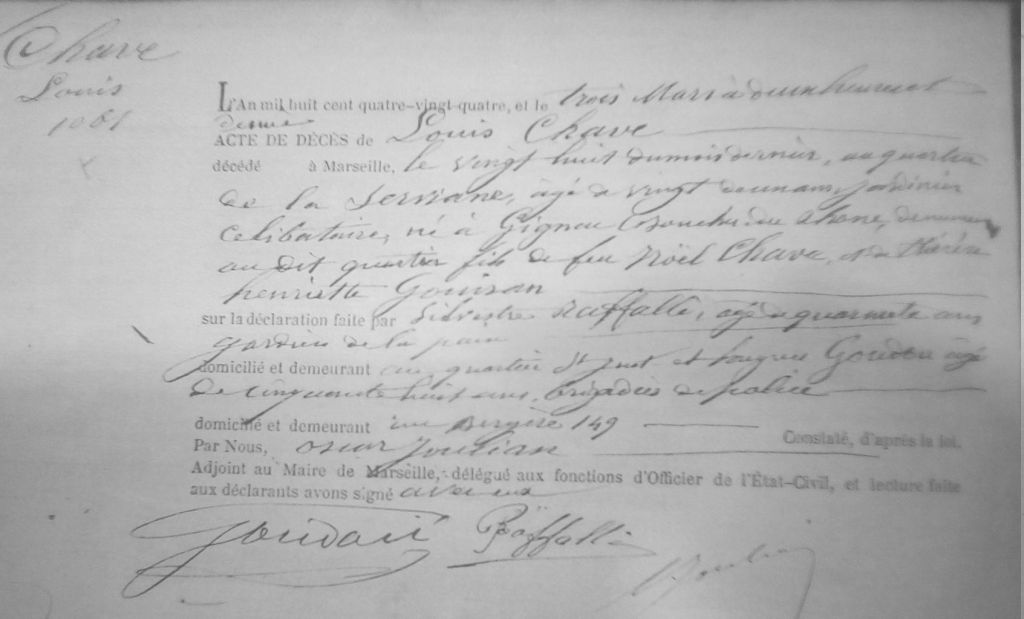 Chave
Louis
1061
L'An mil huit cent quatre-vingt-quatre, et le trois Mars à deux heures et
demie
ACTE DE DÉCÈS de Louis Chave
décédé à Marseille, le vingt huit du mois dernier, au quartier
de la Serviane, âgé de vingt deux ans, jardinier
celibataire, né à Gignac Bouches du Rhone, demeurant
au dit quartier fils de feu Noël Chave, et de Thérèse
henriette Gouiran
sur la déclaration faite par Silvestre Raffalli, âgé de quarante ans
gardien de la paix
domicilié et demeurant au quartier St just et Goudon âgé
de cinquante huit ans, brigadier de police
domicilié et demeurant rue Bergère 149
Constaté, d'après la loi.
Par Nous, oscar Joulian
Adjoint au Maire de Marseille, délégué aux fonctions d'Officier de l'État-Civil, et lecture faite
aux déclarants avons signé avec eux
Raffalli